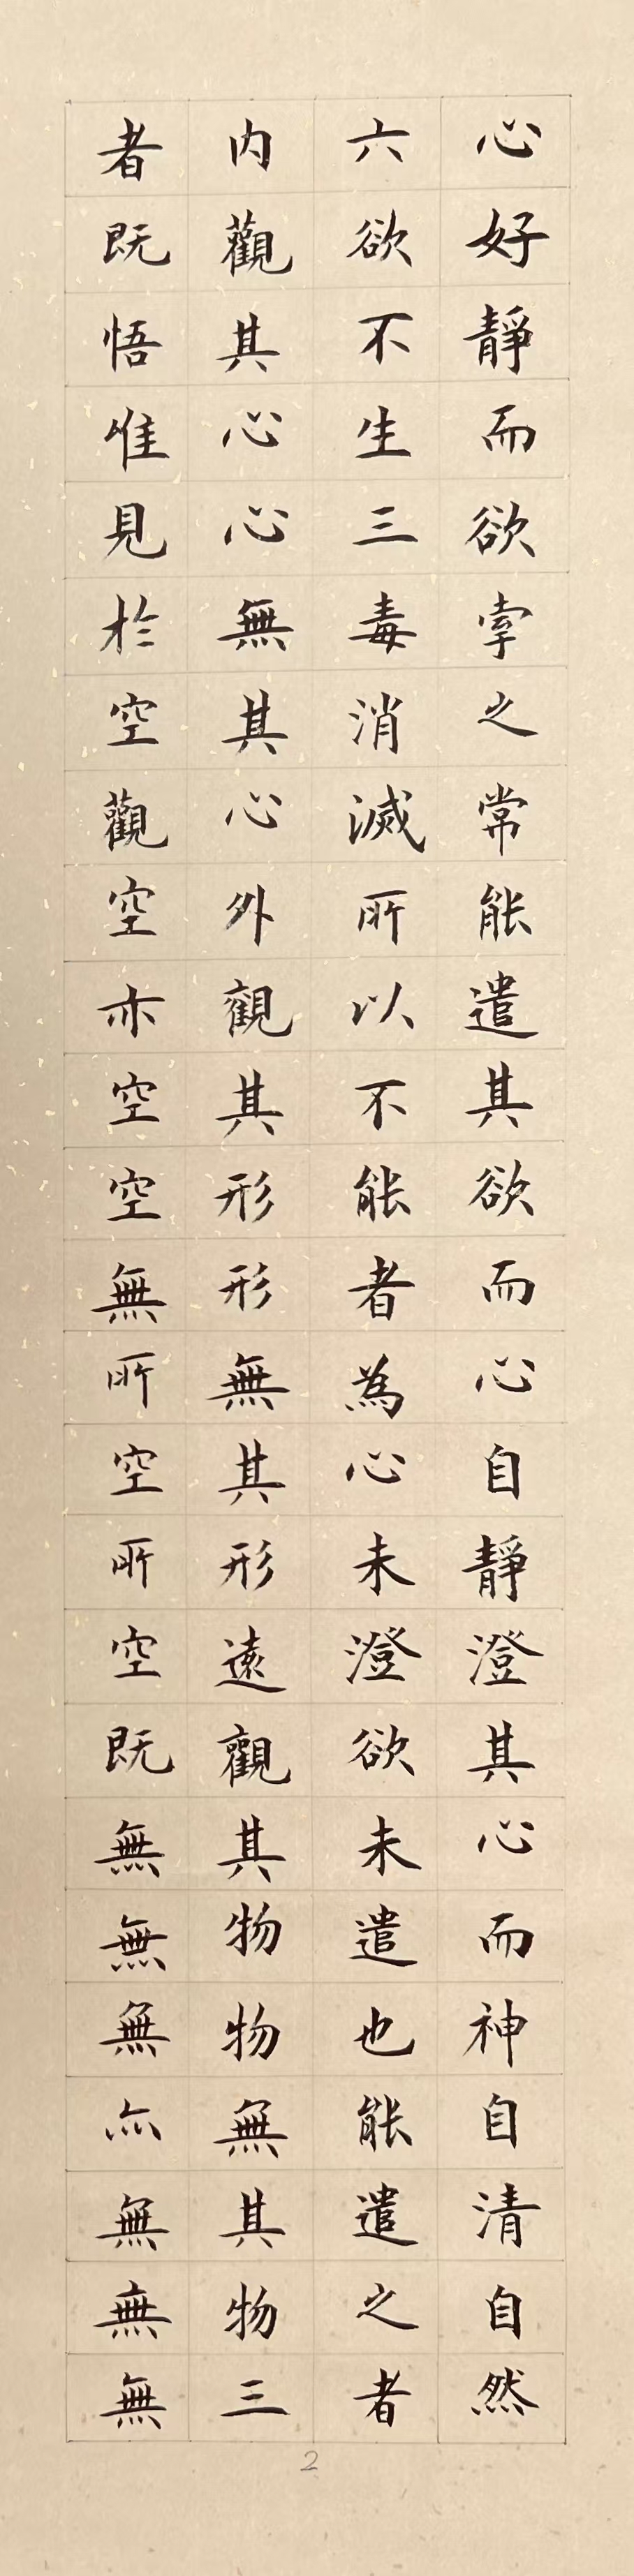 心好靜而欲牽之常能遣其欲而心自靜澄其心而神自清自然
六欲不生三毒消滅所以不能者為心未澄欲未遣也能遣之者
内觀其心心無其心外觀其形形無其形遠觀其物物無其物三
者既悟惟見於空觀空亦空空無所空所空既無無無亦無無無
2